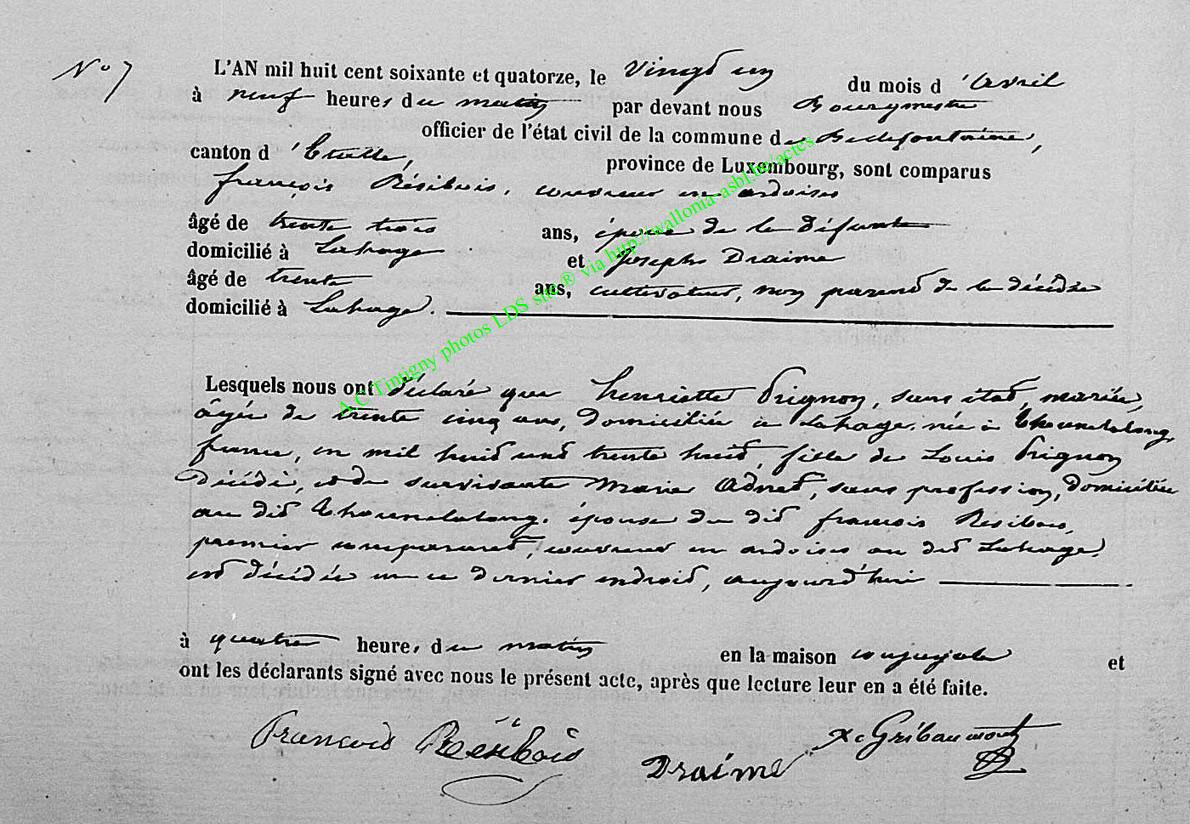 N° 7
L'AN mil huit cent soixante et quatorze, le vingt un du mois d'avril
à neuf heures du matin par devant nous Bourgmestre
officier de l'état civil de la commune de Bellefontaine,
canton d'Etalle, province de Luxembourg, sont comparus
françois Résibois, couvreur en ardoises
âgé de trente trois ans, époux de la défunte
domicilié à Lahage et Joseph Draime
âgé de trente ans, cultivateur, non parent de la décédée
domicilié à Lahage.
Lesquels nous ont déclaré que henriette Prignon, sans état, mariée,
âgée de trente cinq ans, domiciliée à Lahage, née à Thonnelalong,
france, en mil huit cent trente huit, fille de Louis Prignon
décédé, et de survivante Marie Adnet, sans profession, domiciliée
au dit Thonnelalong, épouse du dit françois Résibois,
premier comparant, couvreur en ardoises au dit Lahage,
est décédée en ce dernier endroit, aujourd'hui
à quatre heures du matin en la maison conjugale et
ont les déclarants signé avec nous le présent acte, après que lecture leur en a été faite.
François Résibois Draime X. Gribaumont
A.C Tintigny photos LDS site ® via http://wallonia-asbl.be/actes